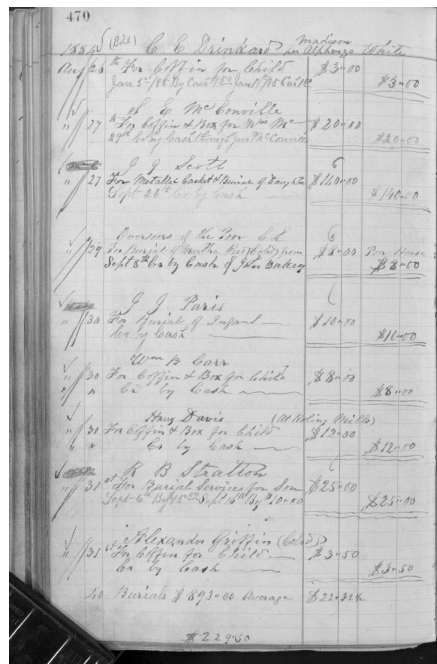 470
1885 (Col) C E Drinkard for Alphonzo White Madison
Aug 26th For Coffin for Child $3.00
Jany 5th/86 By Cash $3.00
S E McConville
" 27 For Coffin & Box for Wm Mc $20.00
29th Cr by Cash through McConville $20.00
J J Scott
" 27 For Metallic Casket & Burial of Daughter $140.00
Sept 26th Cr by Cash $140.00
Overseers of the Poor
" 29 For Burial of from $8.00 Poor House
Sept 8th Cr by Cash of John Oakey $8.00
J J Paris
" 30 For Burial of Infant $10.00
Cr by Cash $10.00
Wm B Carr
" 30 For Coffin & Box for Child $8.00
" " Cr by Cash $8.00
Harry Davis (At Roling Mills)
" 30 For Coffin & Box for Child $12.00
" " Cr by Cash $12.00
R B Stratton
" 31st For Burial Services for Son $25.00
Sept 6th By $15.00 Sept 16th By $10.00 $25.00
Alexander Griffin (Cold)
" 31st For Coffin for Child $3.50
Cr by Cash $3.50
40 Burials $893.00 Average $22.32½
$229.50